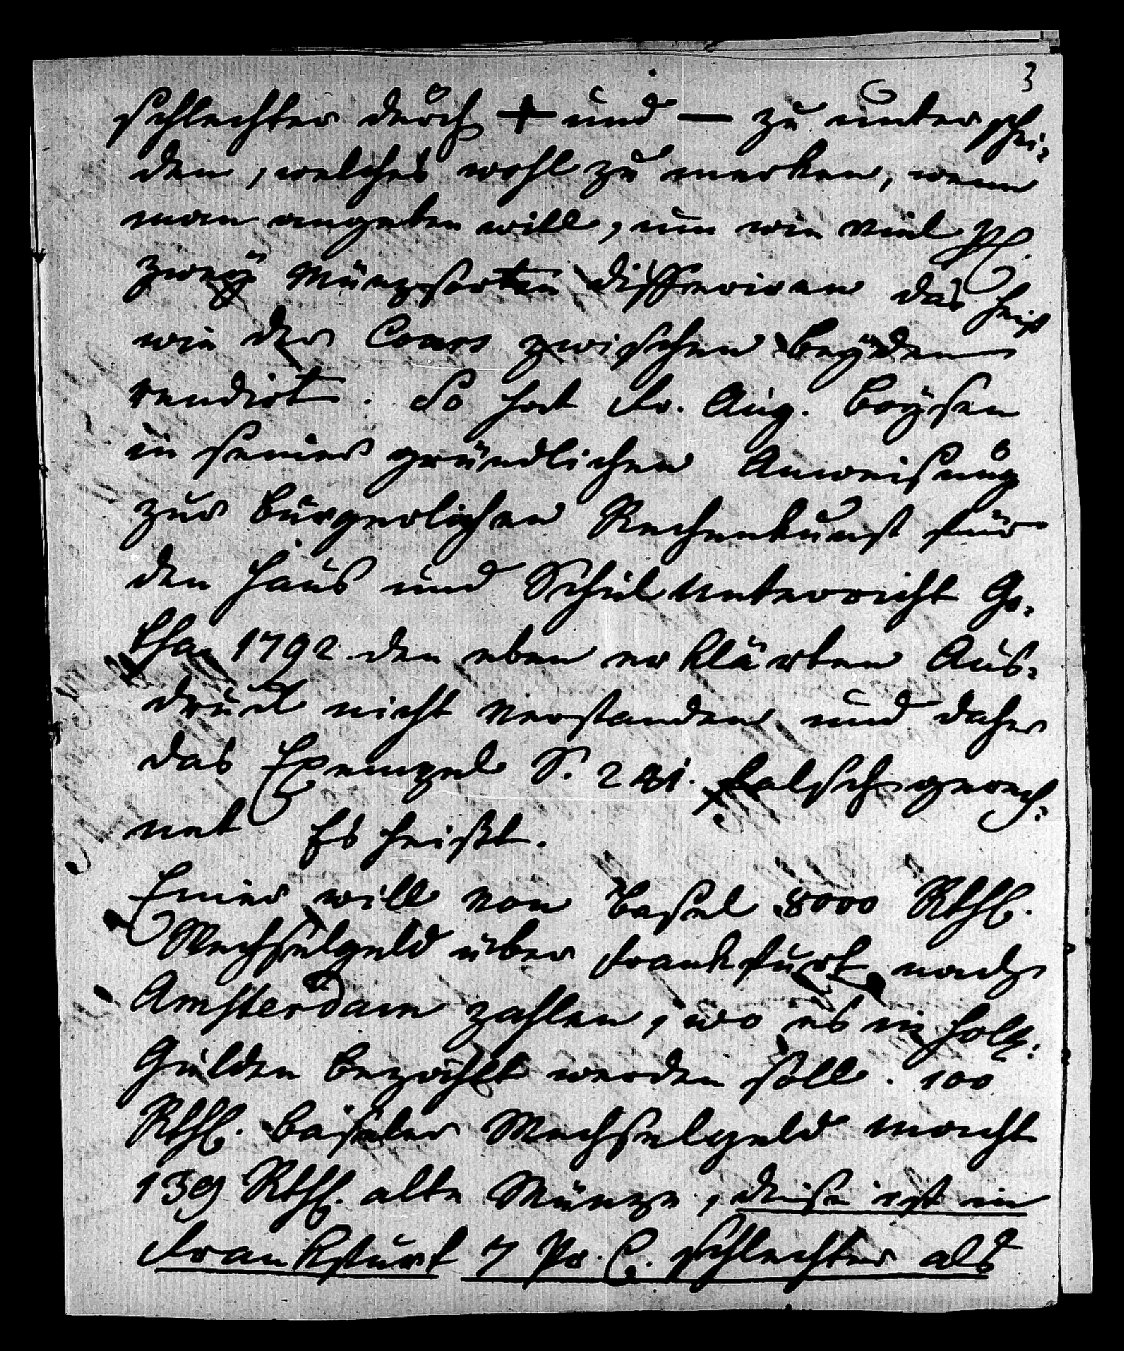 3
schlechter durch + und — zu unterschei-
den, welches wohl zu merken, wenn
man angeben will, um wie viel
zwey Münzsorten differiren das heist
wie der Cours zwischen beyden
rendirt. So hat Fr. Aug. Boysen
in seiner gründlichen Anweisung
zur bürgerlichen Rechenkunst für
den Haus und Schul Unterricht Go-
tha 1792 den eben erklärten Aus-
druck nicht verstanden und daher
das Exempel S. falsch gerech-
net Es heißt.
Einer will von Basel 8000 Rthl.
Wechselgeld über Frankfurt nach
Amsterdam zahlen, wo es in holl.
Gulden bezahlt werden soll. 100
Rthl. Baseler Wechselgeld macht
139 Rthl. alte Münze, diese ist in
Frankfurt 7 Pr. C. schlechter als